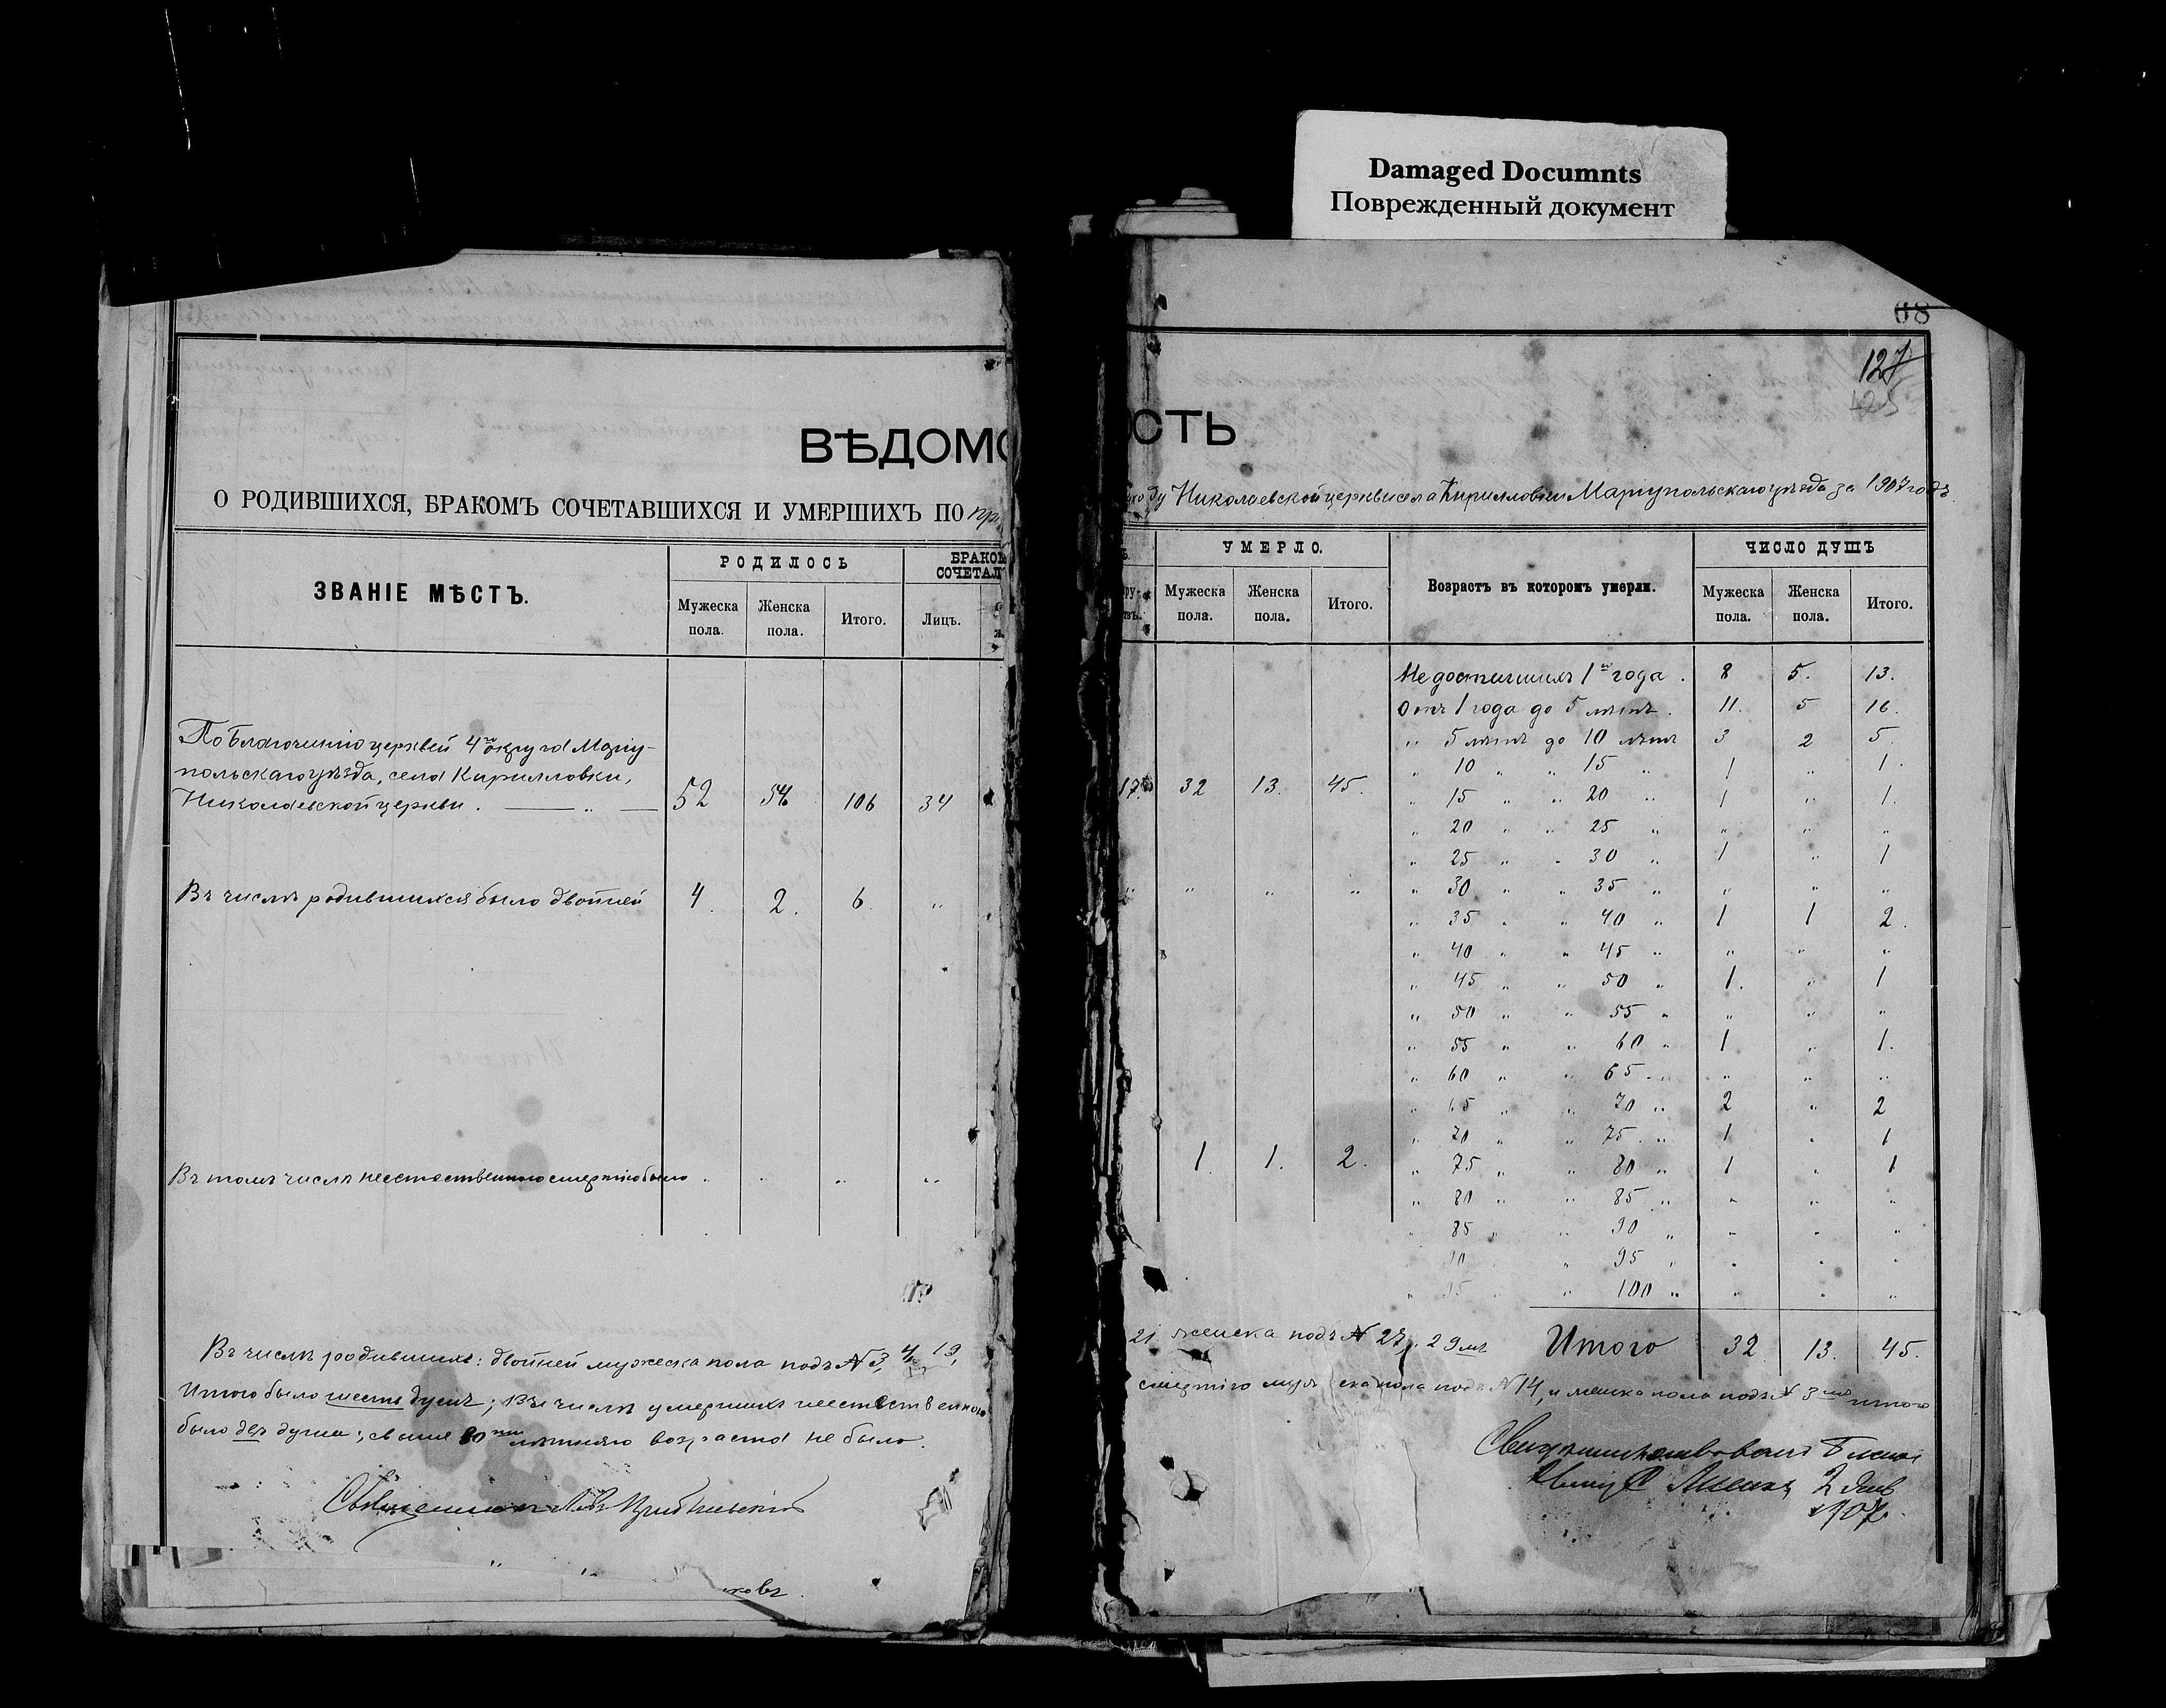 Damaged Documnts
Поврежденный документ
08
127
ВѢДОМО
СТЬ
О РОДИВШИХСЯ, БРАКОМЪ СОЧЕТАВШИХСЯ И УМЕРШИХЪ ПО при
ходу Николаевской церкви села Кирилловки Маріупольскаго уѣзда за 1907 годъ
ЗВАНІЕ МѢСТЪ.
РОДИЛОСЬ
БРАКОМ
СОЧЕТАЛ
Мужеска пола.
Женска пола.
Итого.
Лицъ.
УМЕРЛО.
Мужеска пола.
Женска пола.
Итого.
Возрастъ въ которомъ умерли.
ЧИСЛО ДУШЪ
Мужеска пола.
Женска пола.
Итого.
По благочинію церквей 4го округа Маріу-
польскаго уѣзда, села Кирилловки,
Николаевской церкви. — „ — 52 54 106 34
17. 32 13. 45.
Въ числѣ родившихся было двойней 4. 2. 6. „
„ „ „ „
Въ томъ числѣ неестественною смертію было „ „ „ „
1. 1. 2.
Не достигшихъ 1го года. 8 5. 13.
Отъ 1 года до 5 лѣтъ. 11. 5 16.
„ 5 лѣтъ до 10 лѣтъ 3 2 5.
„ 10 „ „ 15 „ 1 „ 1.
„ 15 „ „ 20 „ 1 „ 1.
„ 20 „ „ 25 „ „ „ „
„ 25 „ „ 30 „ 1 „ 1
„ 30 „ „ 35 „ „ „ „
„ 35 „ „ 40 „ 1 1 2.
„ 40 „ „ 45 „ „ „ „
„ 45 „ „ 50 „ 1. „ 1
„ 50 „ „ 55 „ „ „ „
„ 55 „ „ 60 „ 1 „ 1.
„ 60 „ „ 65 „ „ „ „
„ 65 „ „ 70 „ 2 „ 2
„ 70 „ „ 75 „ 1 „ 1
„ 75 „ „ 80 „ 1 „ 1
„ 80 „ „ 85 „ „ „ „
„ 85 „ „ 90 „ „ „ „
„ 90 „ „ 95 „ „ „ „
„ 95 „ „ 100 „ „ „ „
Итого 32 13. 45.
Въ числѣ родившихъ: двойней мужеска пола подъ № 3, 4, 19,
21 женска подъ № 27, 29мъ
Итого было шесть душъ; Въ числѣ умершихъ неестественною
смертію мужеска пола подъ № 14, и женска пола подъ № 3мъ итого
было двѣ души; свыше 80ти лѣтняго возраста не было.
Священникъ
Свидѣтельствовалъ
2 Янв
1907.
ковъ.